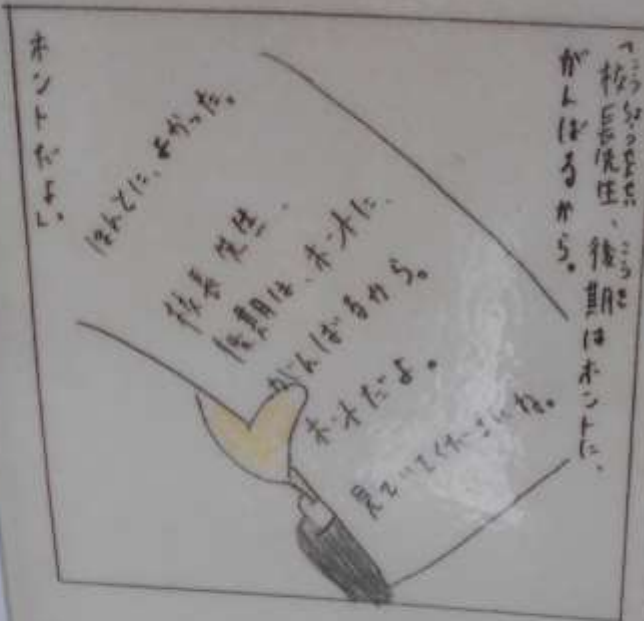 「校長先生、後期はホントに、
がんばるから。
ホントだよ。
ほんとに、よかった。
校長先生、
後期は、ホントに、
がんばるから。
ホントだよ。
見ていてくださいね。